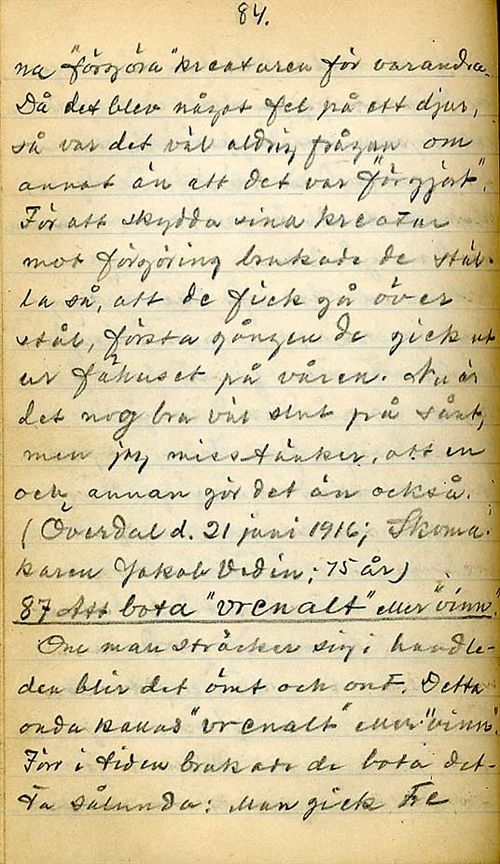 84.
na "förgöra" kreaturen för varandra.
Då det blev något fel på ett djur,
så var det väl aldrig frågan om
annat än att det var "förgjort".
För att skydda sina kreatur
mot förgöring brukade de stäl-
la så, att de fick gå över
stål, första gången de gick ut
ur fähuset på våren. Nu är
det nog bra väl slut på sånt,
men jag misstänker, att en
och annan gör det än också.
(Överdal d. 21 juni 1916; Skoma-
karen Jakob Vedin; 75 år)
87 Att bota "vrenalt" eller "vinn".
Om man sträcker sig i handle-
den blir det ömt och ont. Detta
onda kallas "vrenalt" eller "vinn".
Förr i tiden brukade de bota det-
ta sålunda: Man gick te